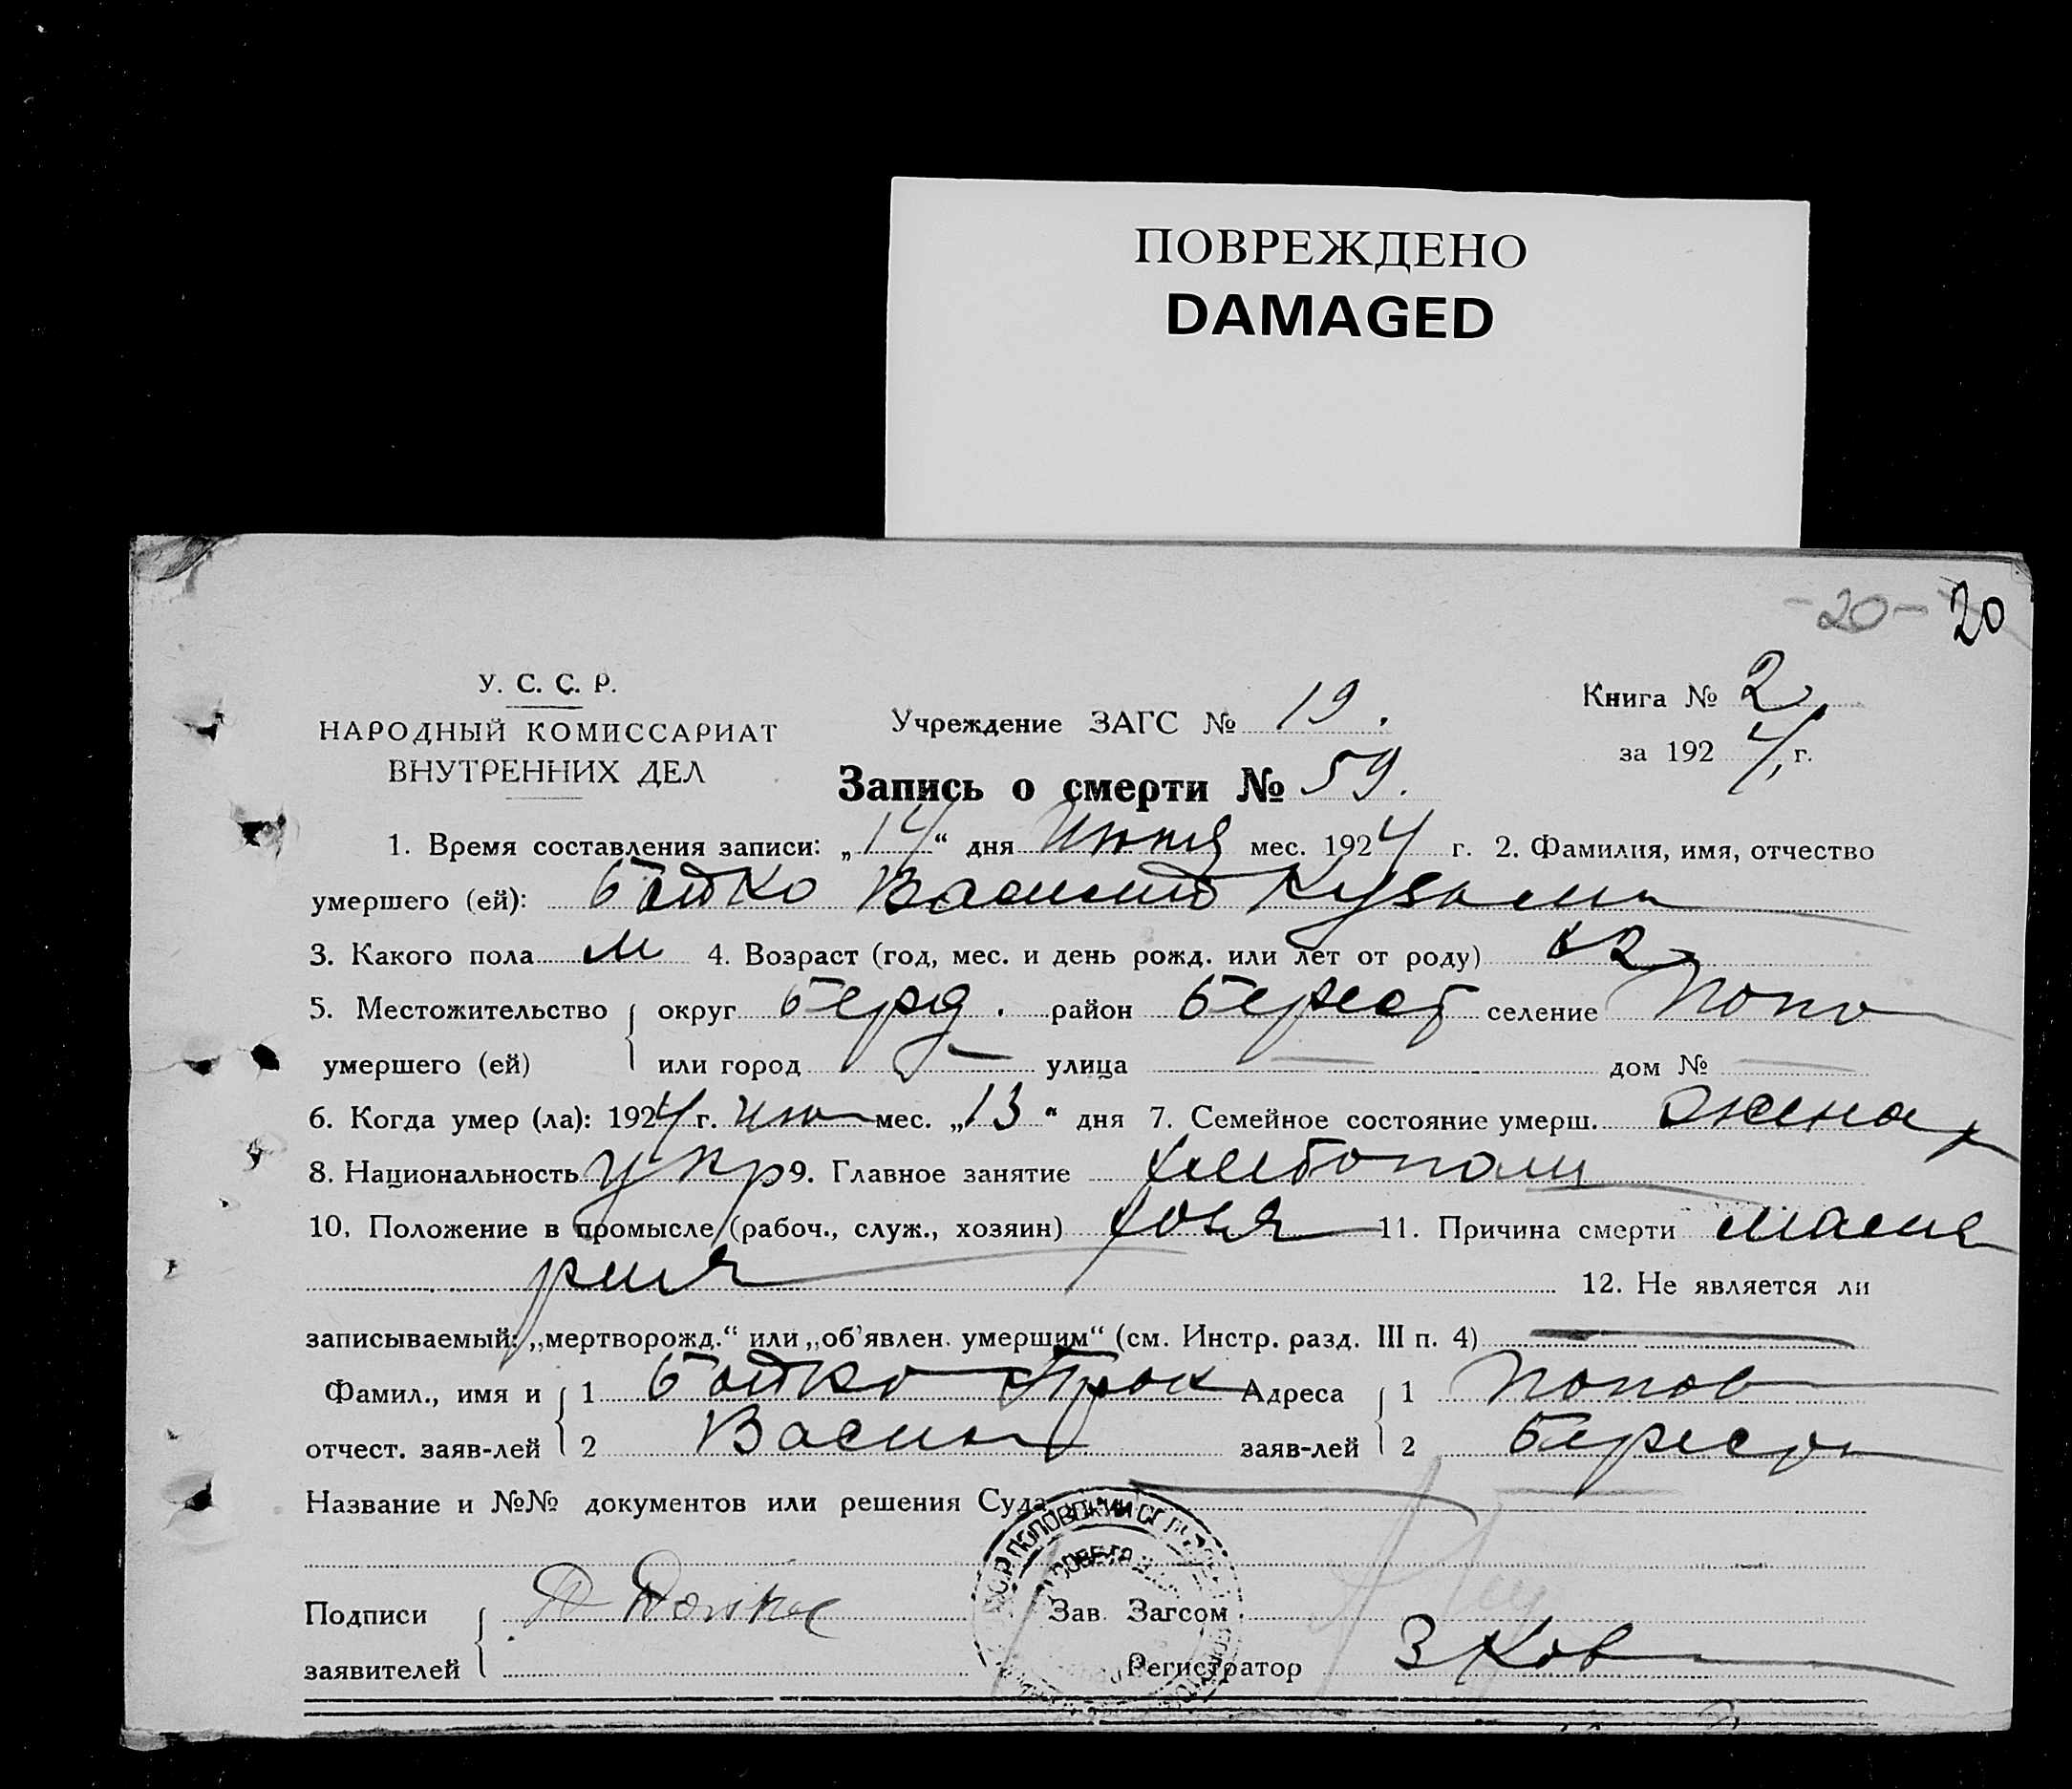 ПОВРЕЖДЕНО
DAMAGED
-20- 20
У. С. С. Р.
НАРОДНЫЙ КОМИССАРИАТ
ВНУТРЕННИХ ДЕЛ
Учреждение ЗАГС № 19.
Книга № 2
за 1924 г.
Запись о смерти № 59.
1. Время составления записи: „14“ дня мес. 1924 г. 2. Фамилия, имя, отчество
умершего (ей): Бойко Василий
3. Какого пола м 4. Возраст (год, мес. и день рожд. или лет от роду)
5. Местожительство округ Берд. район Берест селение Попо
умершего (ей) или город — улица — дом № —
6. Когда умер (ла): 1924 г. мес. „13“ дня 7. Семейное состояние умерш. женат
8. Национальность укр 9. Главное занятие
10. Положение в промысле (рабоч., служ., хозяин) 11. Причина смерти маля
рия 12. Не является ли
записываемый: „мертворожд.“ или „об'явлен. умершим“ (см. Инстр. разд. III п. 4) —
Фамил., имя и 1 Бойко Адреса 1 Попов
отчест. заяв-лей 2 Васил заяв-лей 2
Название и №№ документов или решения Суда
Подписи Зав. Загсом
заявителей Регистратор З Ков